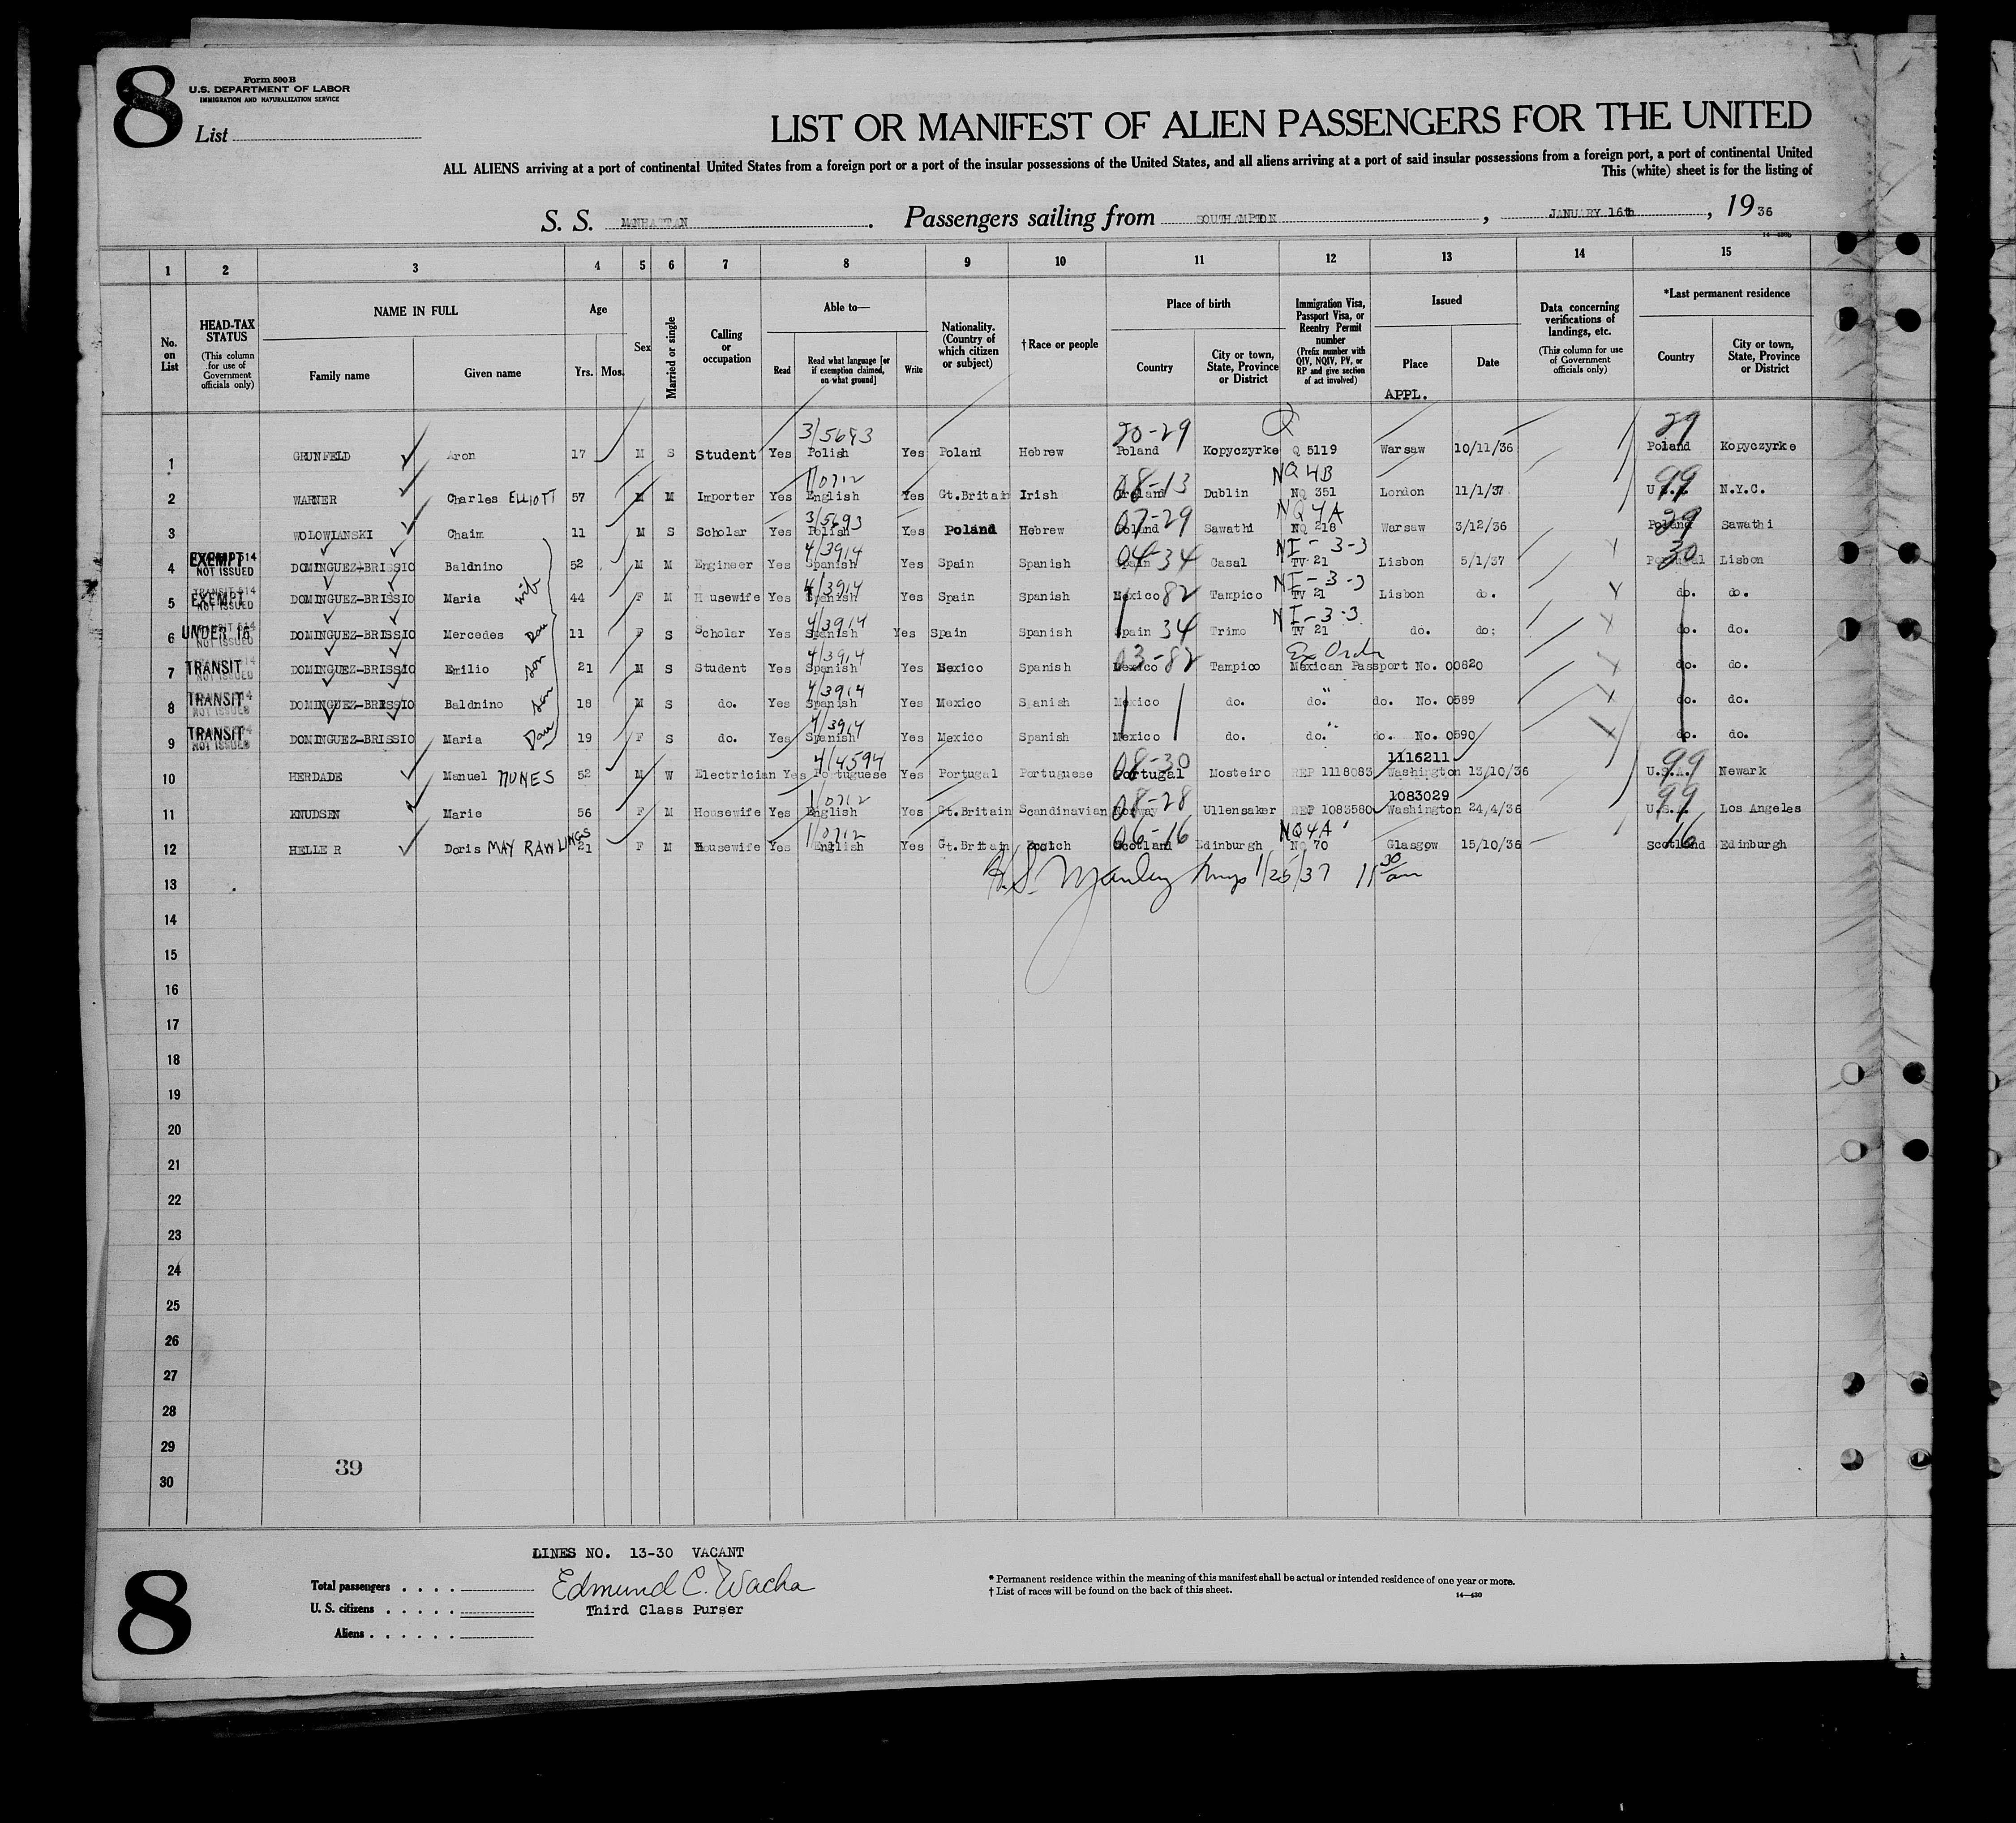 8
Form 500B
U.S. DEPARTMENT OF LABOR
IMMIGRATION AND NATURALIZATION SERVICE
List
LIST OR MANIFEST OF ALIEN PASSENGERS FOR THE UNITED
ALL ALIENS arriving at a port of continental United States from a foreign port or a port of the insular possessions of the United States, and all aliens arriving at a port of said insular possessions from a foreign port, a port of continental United
This (white) sheet is for the listing of
S. S. MANHATTAN. Passengers sailing from SOUTHAMPTON, JANUARY 16th, 1936
1 2 3 4 5 6 7 8 9 10 11 12 13 14 15
No. on List
HEAD-TAX STATUS
(This column for use of Government officials only)
NAME IN FULL
Family name Given name
Age
Yrs. Mos.
Sex
Married or single
Calling or occupation
Able to—
Read Read what language [or if exemption claimed, on what ground] Write
Nationality. (Country of which citizen or subject)
†Race or people
Place of birth
Country City or town, State, Province or District
Immigration Visa, Passport Visa, or Reentry Permit number
(Prefix number with QIV, NQIV, PV, or RP and give section of act involved)
Issued
Place Date
APPL.
Data concerning verifications of landings, etc.
(This column for use of Government officials only)
*Last permanent residence
Country City or town, State, Province or District
3/5693 20-29 Q 29
1 GRUNFELD Aron 17 M S Student Yes Polish Yes Poland Hebrew Poland Kopyczyrke Q 5119 Warsaw 10/11/36 Poland Kopyczyrke
1/0712 08-13 NQ 4B 99
2 WARNER Charles ELLIOTT 57 M M Importer Yes English Yes Gt.Britain Irish Ireland Dublin NQ 351 London 11/1/37 U.S.A. N.Y.C.
3/5693 07-29 NQ 4A 29
3 WOLOWIANSKI Chaim 11 M S Scholar Yes Polish Yes Poland Hebrew Poland Sawathi NQ 218 Warsaw 3/12/36 Poland Sawathi
EXEMPT 4/3914 04-34 NI-3-3 30
4 NOT ISSUED DOMINGUEZ-BRISSIO Baldnino 52 M M Engineer Yes Spanish Yes Spain Spanish Spain Casal TV 21 Lisbon 5/1/37 Portugal Lisbon
EXEMPT wife 4/3914 82 NI-3-3
5 NOT ISSUED DOMINGUEZ-BRISSIO Maria 44 F M Housewife Yes Spanish Yes Spain Spanish Mexico Tampico TV 21 Lisbon do. do. do.
UNDER 16 Dau 4/3914 34 NI-3-3
6 NOT ISSUED DOMINGUEZ-BRISSIO Mercedes 11 F S Scholar Yes Spanish Yes Spain Spanish Spain Trimo TV 21 do. do: do. do.
TRANSIT son 4/3914 03-82 Ex Order
7 NOT ISSUED DOMINGUEZ-BRISSIO Emilio 21 M S Student Yes Spanish Yes Mexico Spanish Mexico Tampico Mexican Passport No. 00820 do. do.
TRANSIT son 4/3914
8 NOT ISSUED DOMINGUEZ-BRISSIO Baldnino 18 M S do. Yes Spanish Yes Mexico Spanish Mexico do. do." do. No. 0589 do. do.
TRANSIT Dau 4/3914
9 NOT ISSUED DOMINGUEZ-BRISSIO Maria 19 F S do. Yes Spanish Yes Mexico Spanish Mexico do. do." do. No. 0590 do. do.
4/4594 08-30 1116211 99
10 HERDADE Manuel NUNES 52 M W Electrician Yes Portuguese Yes Portugal Portuguese Portugal Mosteiro REP 1118083 Washington 13/10/36 U.S.A. Newark
1/0712 08-28 1083029 99
11 KNUDSEN Marie 56 F M Housewife Yes English Yes Gt.Britain Scandinavian Norway Ullensaker REP 1083580 Washington 24/4/36 U.S.A. Los Angeles
1/0712 06-16 NQ4A 16
12 HELLER Doris MAY RAWLINGS 21 F M Housewife Yes English Yes Gt.Britain Scotch Scotland Edinburgh NQ 70 Glasgow 15/10/36 Scotland Edinburgh
13 Manley 1/25/37 11 30 am
14
15
16
17
18
19
20
21
22
23
24
25
26
27
28
29
39
30
LINES NO. 13-30 VACANT
8
Total passengers
Edmund C. Wacha
U. S. citizens
Third Class Purser
Aliens
* Permanent residence within the meaning of this manifest shall be actual or intended residence of one year or more.
† List of races will be found on the back of this sheet.
14—430